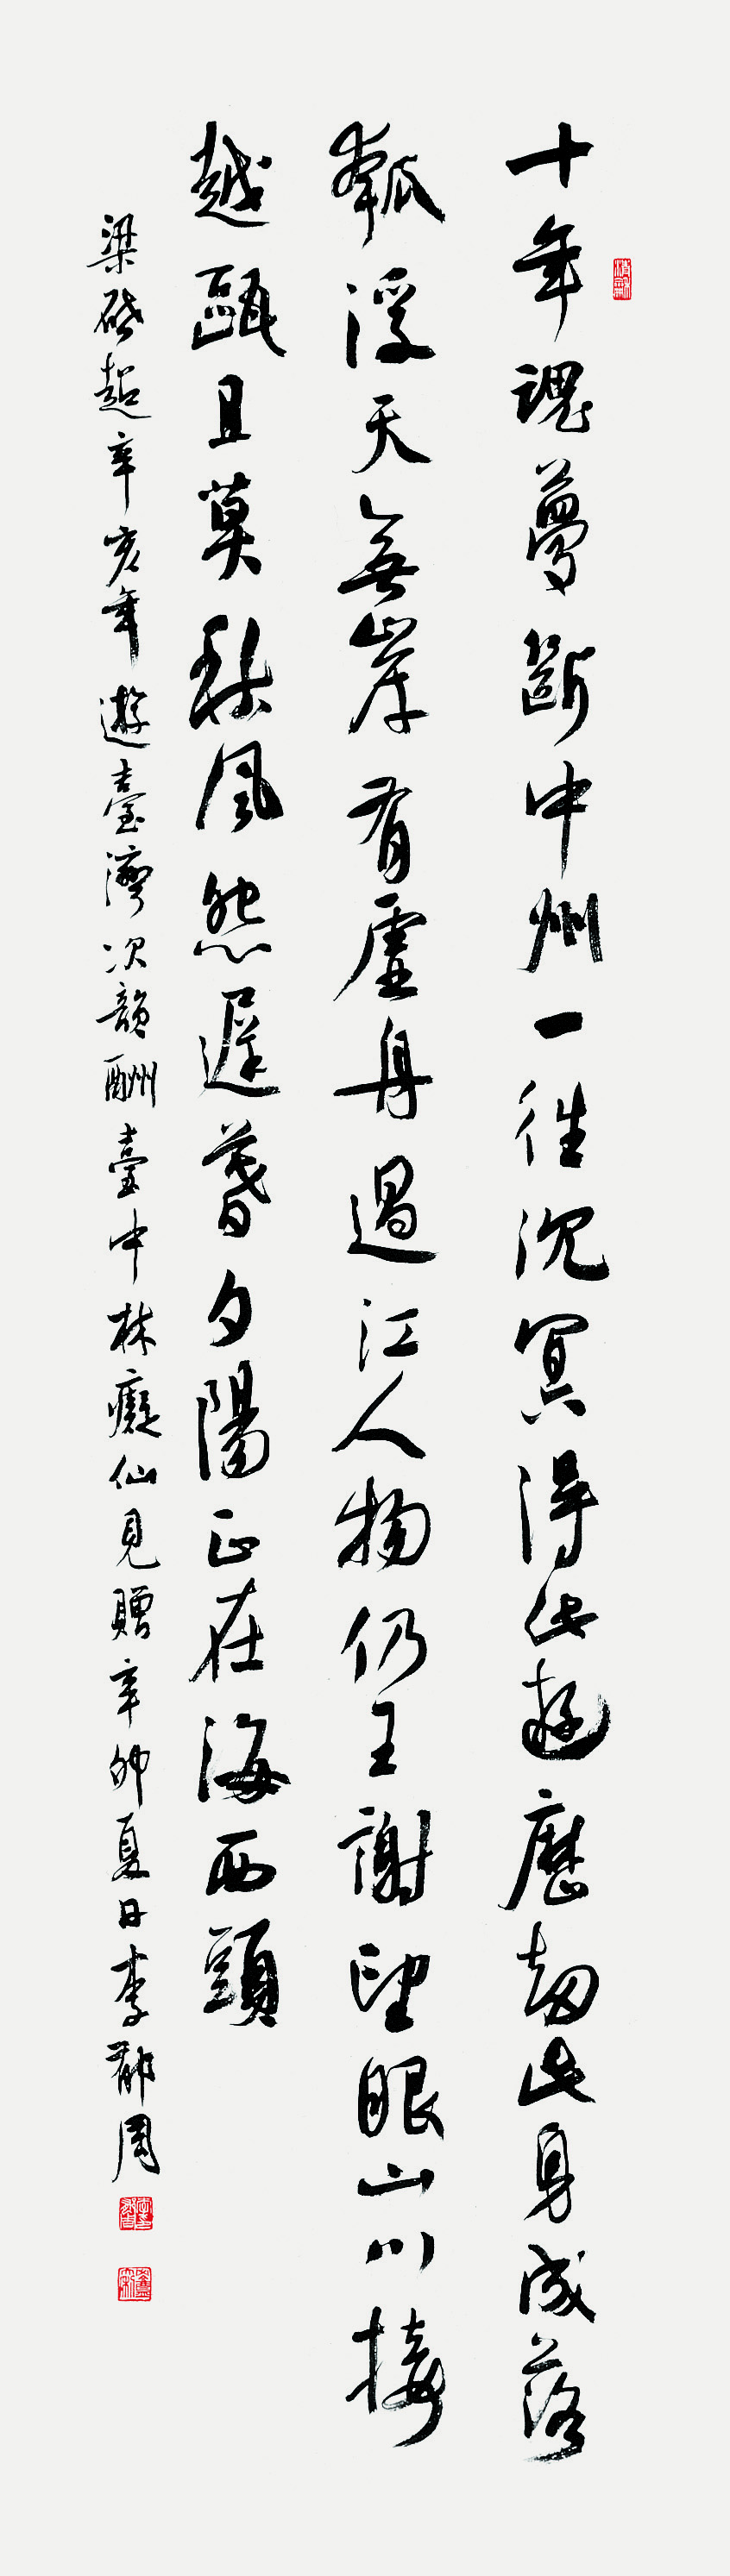 十年魂夢斷中州一往沉冥得此遊歷劫此身成落
瓠浮天無岸有虛舟過江人物仍王謝望眼山川接
越甌且莫秋風怨遲暮夕陽正在海西頭
梁啟超辛亥年遊臺灣次韻酬臺中林癡仙見贈辛卯夏日李郁周